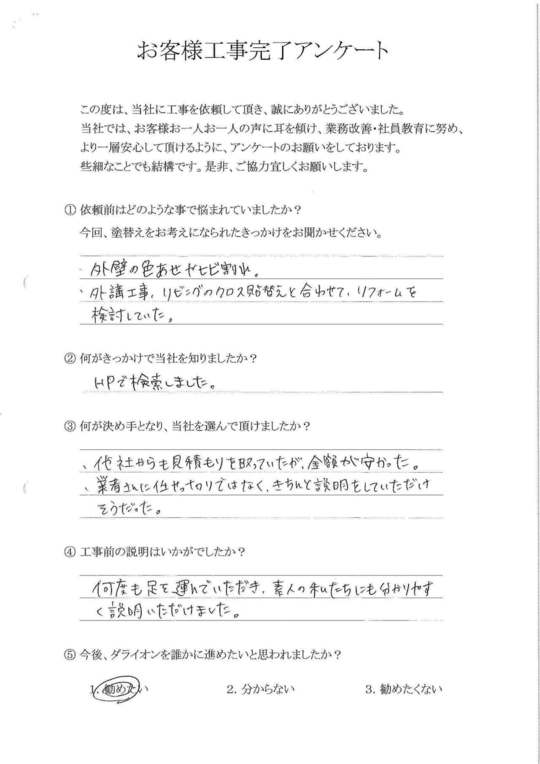 お客様工事完了アンケート
この度は、当社に工事を依頼して頂き、誠にありがとうございました。
当社では、お客様お一人お一人の声に耳を傾け、業務改善・社員教育に努め、
より一層安心して頂けるように、アンケートのお願いをしております。
些細なことでも結構です。是非、ご協力宜しくお願いします。
① 依頼前はどのような事で悩まれていましたか?
今回、塗替えをお考えになられたきっかけをお聞かせください。
・外壁の色あせやヒビ割れ。
・外講工事、リビングのクロス貼替えと合わせて、リフォームを
検討していた。
② 何がきっかけで当社を知りましたか?
HPで検索しました。
③ 何が決め手となり、当社を選んで頂けましたか?
、他社からも見積もりを取っていたが、金額が安かった。
、業者さんに任せっ切りではなく、きちんと説明をしていただけ
そうだった。
④ 工事前の説明はいかがでしたか?
何度も足を運んでいただき、素人の私たちにも分かりやす
く説明いただけました。
⑤ 今後、ダライオンを誰かに進めたいと思われましたか?
1. 勧めたい 2. 分からない 3. 勧めたくない